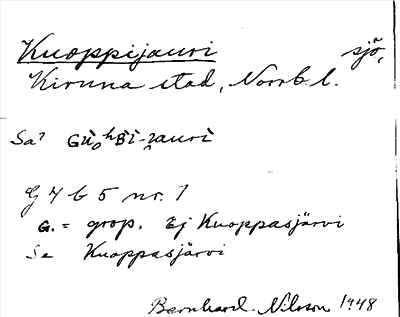 Kuoppijauri sjö,
Kiruna stad, Norrb. l.
Sa?
G 4 b 5 nr. 1
G. = grop. Ej Kuoppasjärvi
Se Kuoppasjärvi
Bernhard Nilsson 1948